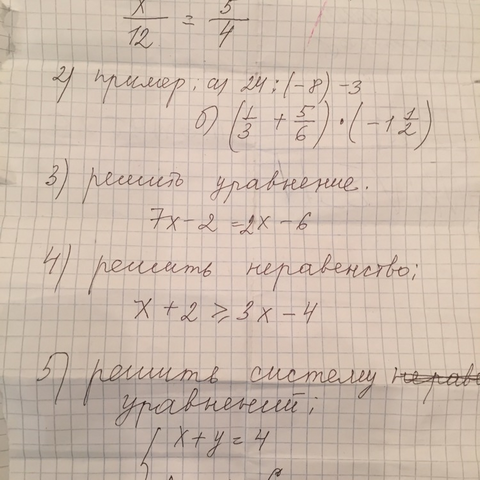 x/12 = 5/4
2) пример; а) 24 : (-8) -3
б) (1/3 + 5/6) · (-1 1/2)
3) решить уравнение.
7x - 2 = 2x - 6
4) решить неравенство;
x + 2 ≥ 3x - 4
5) решить систему
уравнений;
x + y = 4